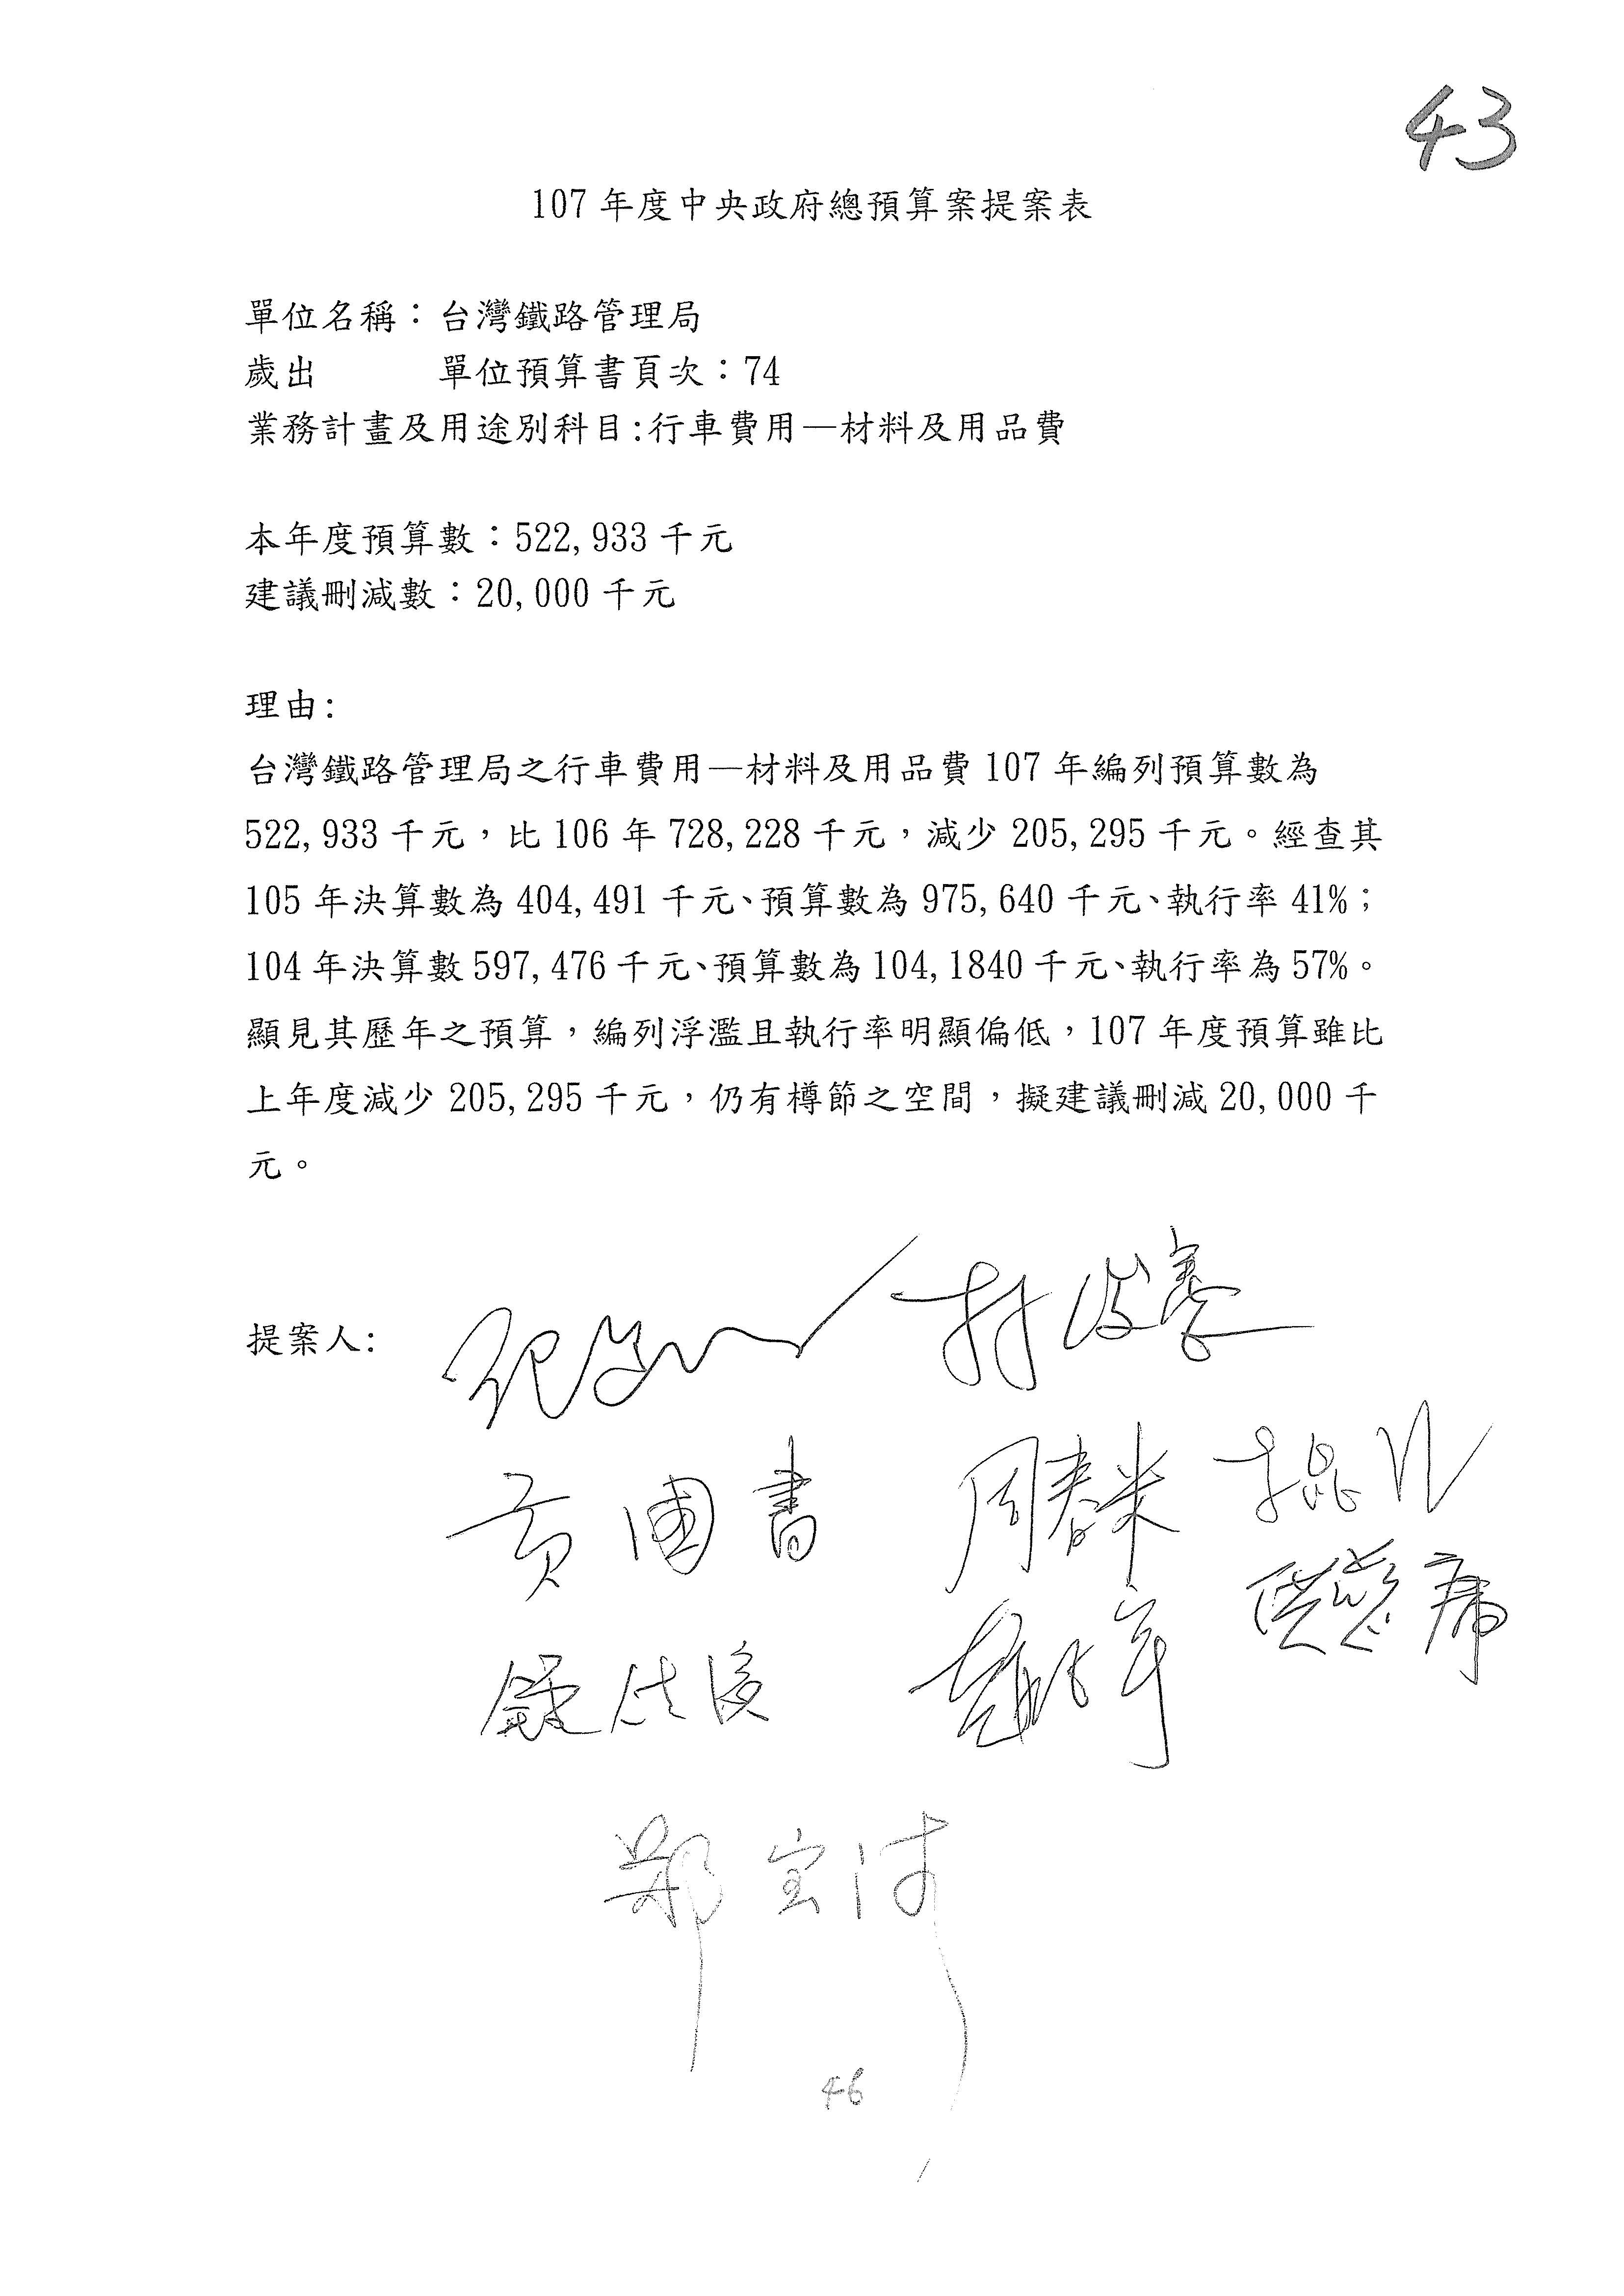 43
107 年度中央政府總預算案提案表
單位名稱：台灣鐵路管理局
歲出 單位預算書頁次：74
業務計畫及用途別科目:行車費用—材料及用品費
本年度預算數：522,933 千元
建議刪減數：20,000 千元
理由:
台灣鐵路管理局之行車費用—材料及用品費 107 年編列預算數為
522,933 千元，比 106 年 728,228 千元，減少 205,295 千元。經查其
105 年決算數為 404,491 千元、預算數為 975,640 千元、執行率 41%；
104 年決算數 597,476 千元、預算數為 104,1840 千元、執行率為 57%。
顯見其歷年之預算，編列浮濫且執行率明顯偏低，107 年度預算雖比
上年度減少 205,295 千元，仍有樽節之空間，擬建議刪減 20,000 千
元。
提案人:
黃國書
鄭宝清
46